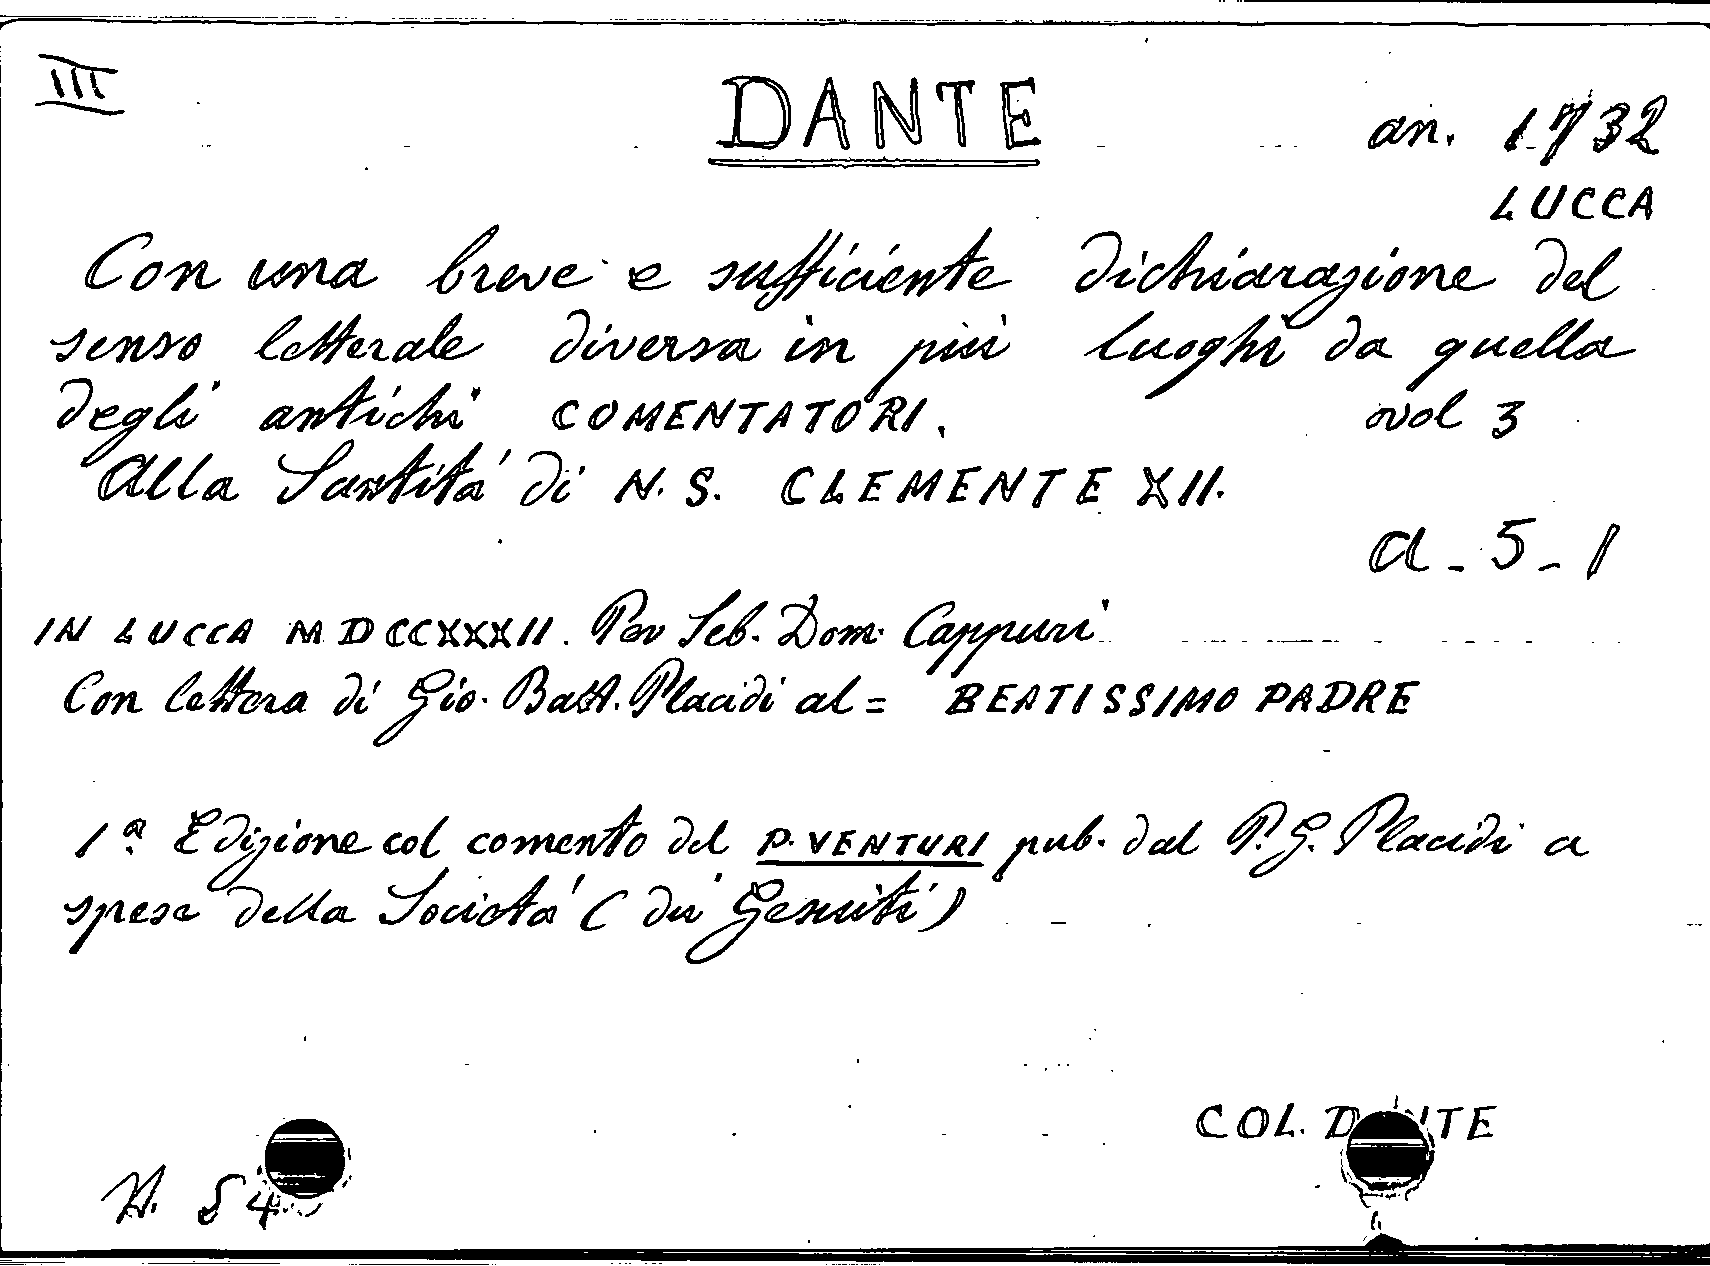 III
DANTE
an. 1732
LUCCA
Con una breve e sufficiente dichiarazione del
senso letterale diversa in più luoghi da quella
degli antichi COMENTATORI. vol 3
Alla Santità di N. S. CLEMENTE XII.
a - 5 - 1
IN LUCCA MDCCXXXII. Per Seb. Dom. Cappuri
Con lettera di Gio. Batt. Placidi al = BEATISSIMO PADRE
1ª Edizione col comento del P. VENTURI pub. dal P. G. Placidi a
spese della Società (dei Gesuiti)
COL. DANTE
N. 54